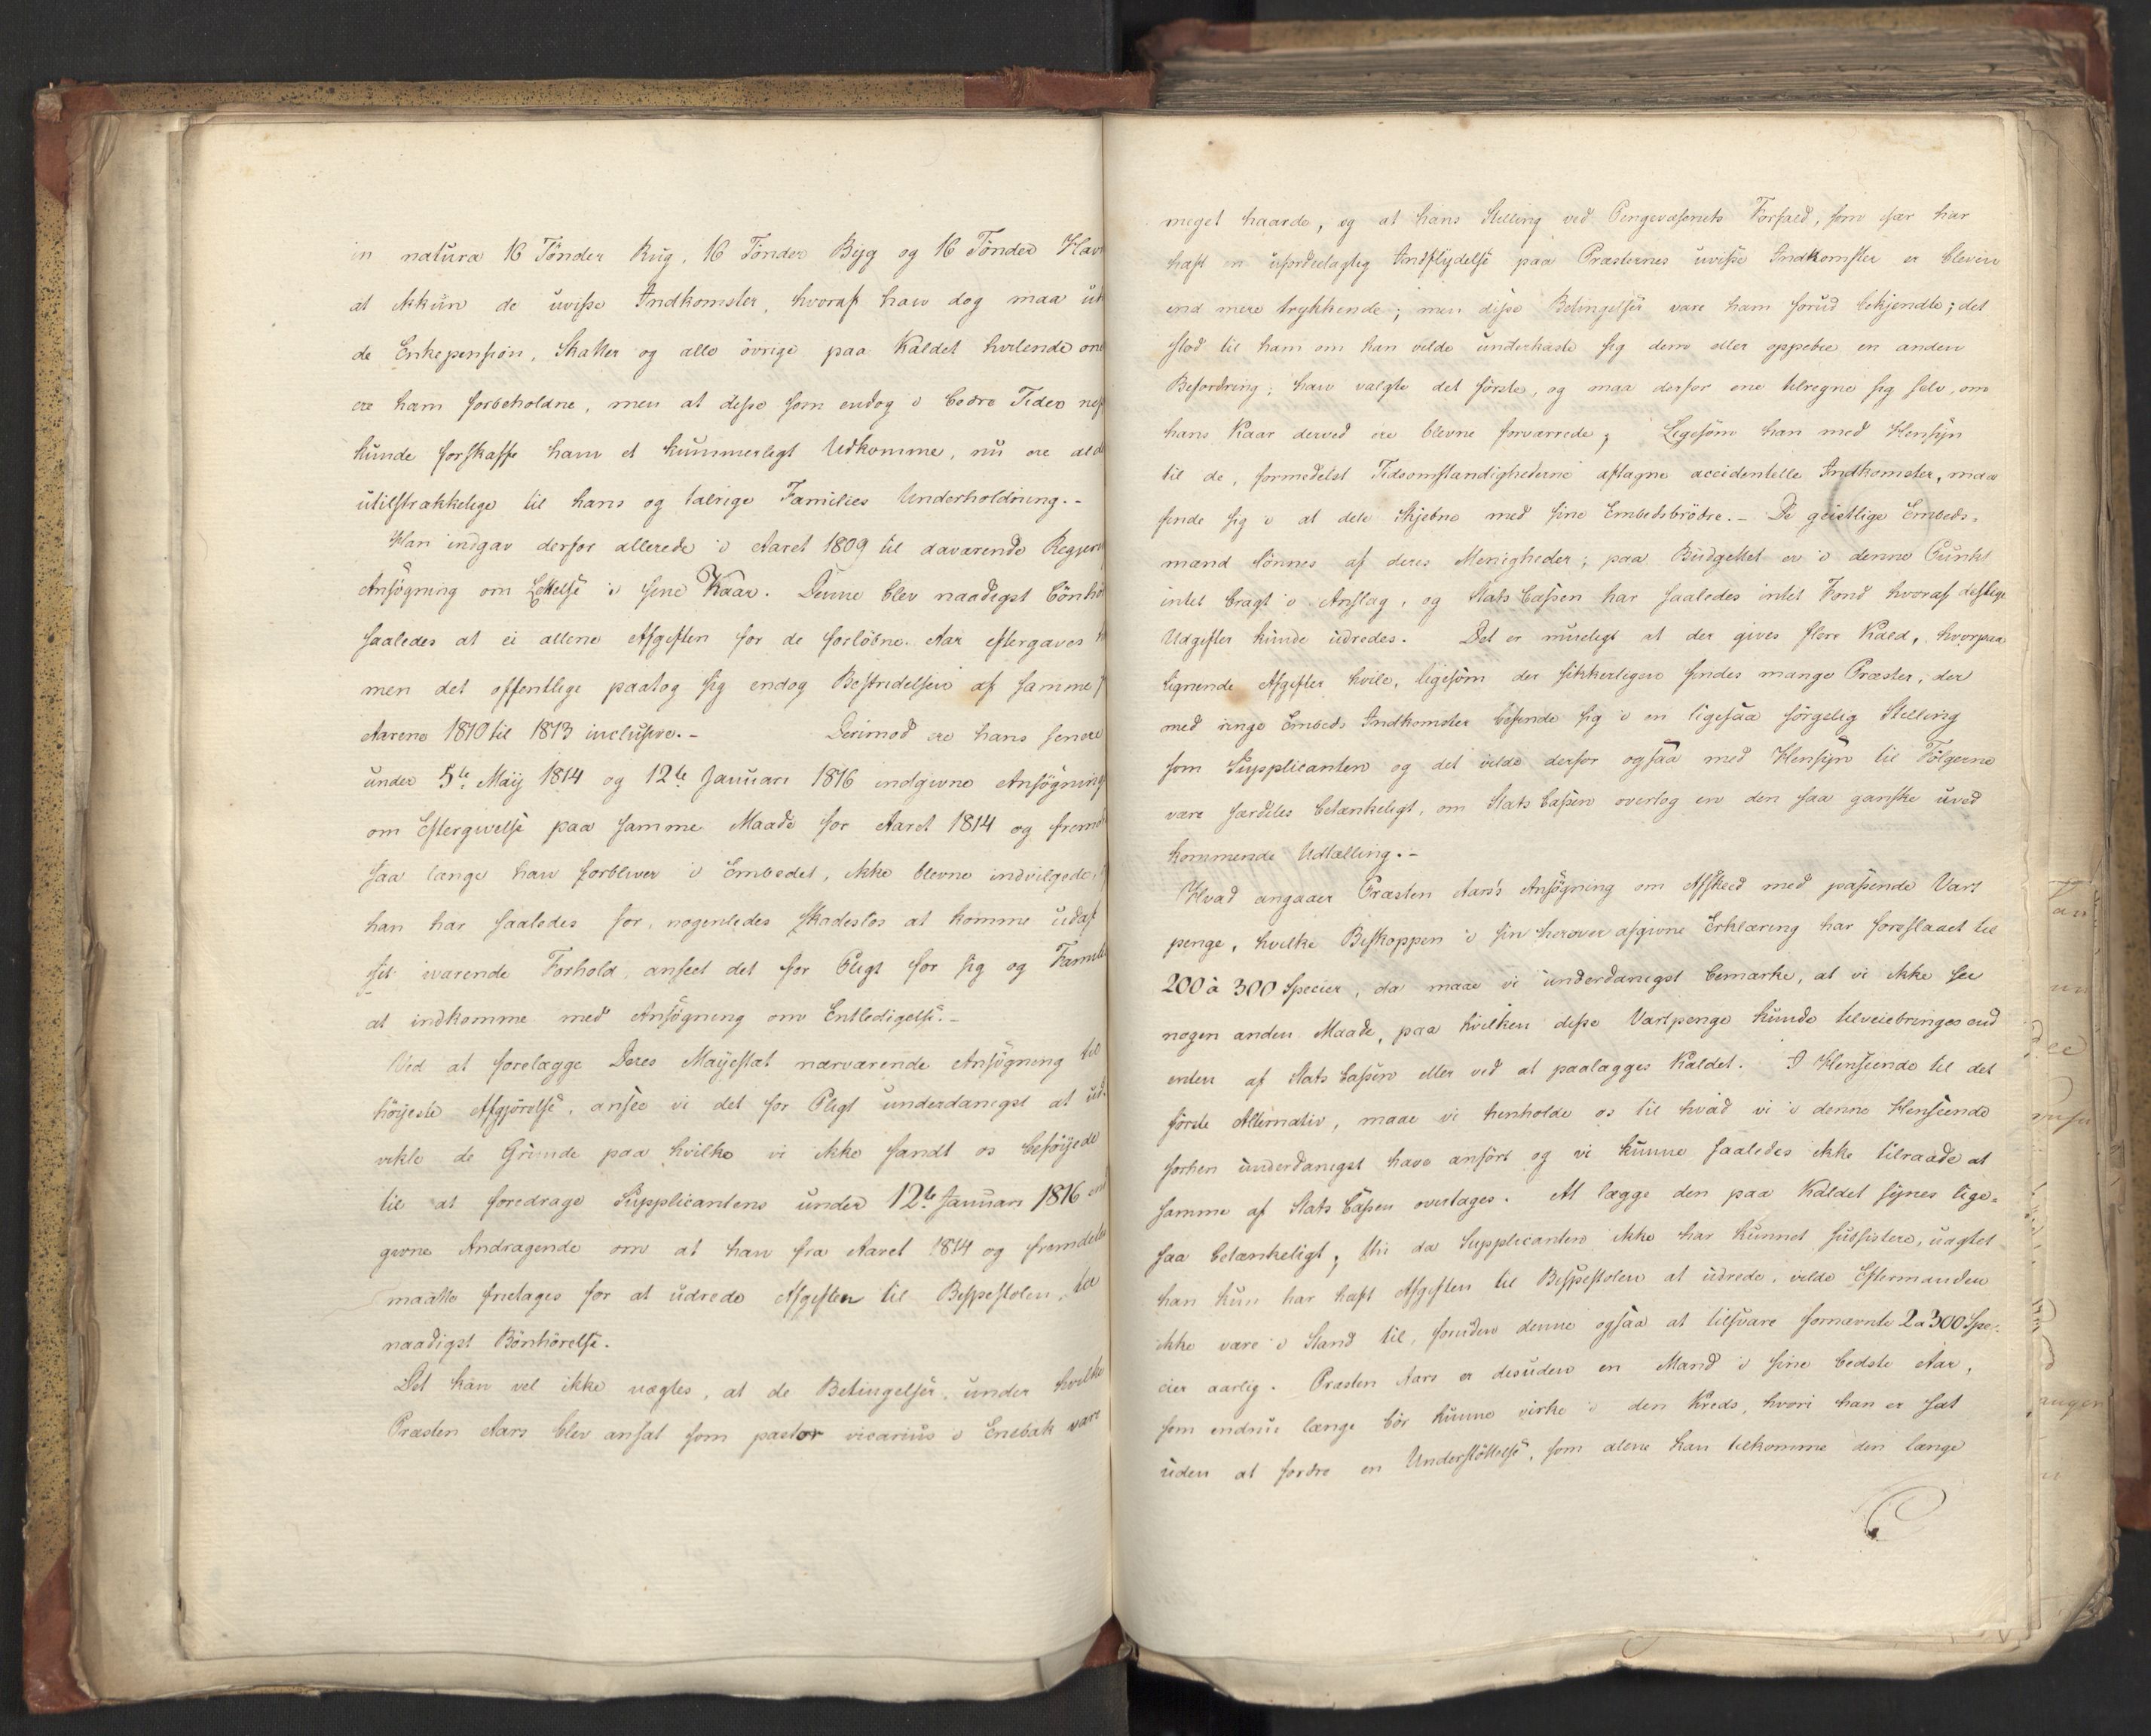 in natura 16 Tönder Rug, 16 Tönder Byg og 16 Tönder Hav
at ikkun de uvisse Indkomster, hvoraf han dog maa ud
de Enkepension, Skatter og alle övrige paa Kaldet hvilende one
ere ham forbeholdne, men at disse som endog i bedre Tider nep
kunde forskaffe ham et kummerligt Udkomme, nu ere alde
utilstrækkelige til hans og talrige Families Underholdning.-
Han indgav derfor allerede i Aaret 1809 til daværende Regjeri
Ansögning om Lettelse i sine Kaar. Denne blev naadigst bönhö
saaledes at ei allene Afgiften for de forlöbne Aar eftergaves
men det offentlige paatog sig endog Bestridelsen af samme f
Aarene 1810 til 1813 inclusive.- Derimod ere hans senere
under 5te May 1814 og 12te Januari 1816 indgivne Ansögning
om Eftergivelse paa samme Maade for Aaret 1814 og fremde
saa længe han forbliver i Embedet, ikke blevne indvilgede,
han har saaledes for, nogenledes skadeslös at komme udaf
sit værende Forhold, anseet det for Pligt for sig og Famili
at indkomme med Ansögning om Entledigelse.-
Ved at forelægge Deres Mayestæt nærværende Ansögning til
höyeste Afgjörelse, ansee vi det for Pligt underdanigst at ud-
vikle de Grunde paa hvilke vi ikke fandt os beföyede
til at foredrage Supplicantens under 12te Januari 1816 ind
givne Andragende om at han fra Aaret 1814 og fremdeles
maatte fritages for at udrede Afgiften til Bispestolen, til
naadigst Bönhörelse.
Det kan vel ikke nægtes, at de Betingelser, under hvilke
Præsten Aars blev ansat som pastor vicarius i Enebak vare
meget haarde, og at hans Stilling ved Pengevæsenets Forfald, som især har
havt en ufordeelagtig Indflydelse paa Præsternes uvisse Indkomster er bleven
end mere trykkende; men disse Betingelser vare ham forud bekjendte; det
stod til ham om han vilde underkaste sig dem eller oppebie en anden
Befordring; han valgte det förste, og maa derfor ene tilregne sig selv, om
hans Kaar derved ere blevne forværrede; Ligesom han med Hensyn
til de, formedelst Tidsomstændighederne aftagne accidentelle Indkomster, maa
finde sig i at dele Skjebne med sine Embedsbrödre.- De geistlige Embeds-
mænd lönnes af deres Menigheder; paa Budgettet er i denne Punkt
intet bragt i Anslag, og Stats Cassen har saaledes intet Fond hvoraf deslige
Udgifter kunde udredes. Det er mueligt at der gives flere Kald, hvorpaa
lignende Afgifter hvile, ligesom der sikkerligen findes mange Præster, der
med ringe Embeds Indkomster befinde sig i en ligesaa sörgelig Stilling
som Supplicanten og det vilde derfor ogsaa med Hensyn til Fölgerne
være særdeles betænkeligt, om Stats Cassen overtog en den saa ganske uved
kommende Udtælling.-
Hvad angaaer Præsten Aars's Ansögning om Afskeed med passende Vart
penge, hvilke Biskoppen i sin herover afgivne Erklæring har foreslaaet til
200 à 300 Specier, da maae vi underdanigst bemærke, at vi ikke see
nogen anden Maade, paa hvilken disse Vartpenge kunde tilveiebringes end
enten af Stats Cassen eller ved at paalægges Kaldet. I Henseende til det
förste Alternativ, maae vi henholde os til hvad vi i denne Henseende
forhen underdanigst have anfört og vi kunne saaledes ikke tilraade at
samme af Stats Cassen overtages. At lægge den paa Kaldet synes lige-
saa betænkeligt; thi da Supplicanten ikke har kunnet subsistere, uagtet
han kun har havt Afgiften til Bispestolen at udrede, vilde Eftermanden
ikke være i Stand til, foruden denne ogsaa at tilsvare fornævnte 2 a 300 Spe-
cier aarlig. Præsten Aars er desuden en Mand i sine bedste Aar,
som endnu længe bör kunne virke i den Kreds, hvori han er sat
uden at fordre en Understöttelse, som alene kan tilkomme den længe